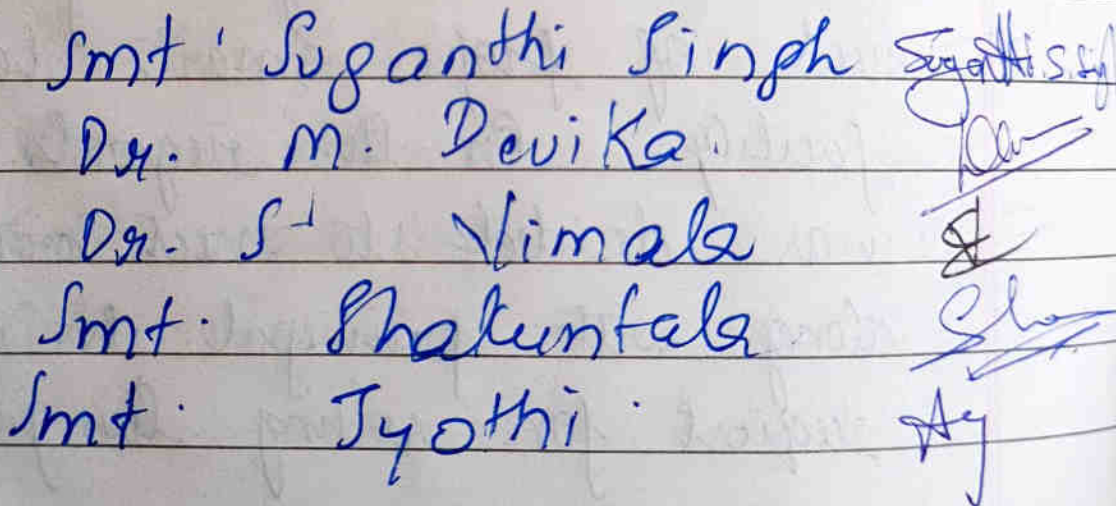 Smt. Suganthi Singh Suganthi.S.
Dr. M. Devika.
Dr. S. Vimala
Smt. Shakuntala Sha
Smt. Jyothi.